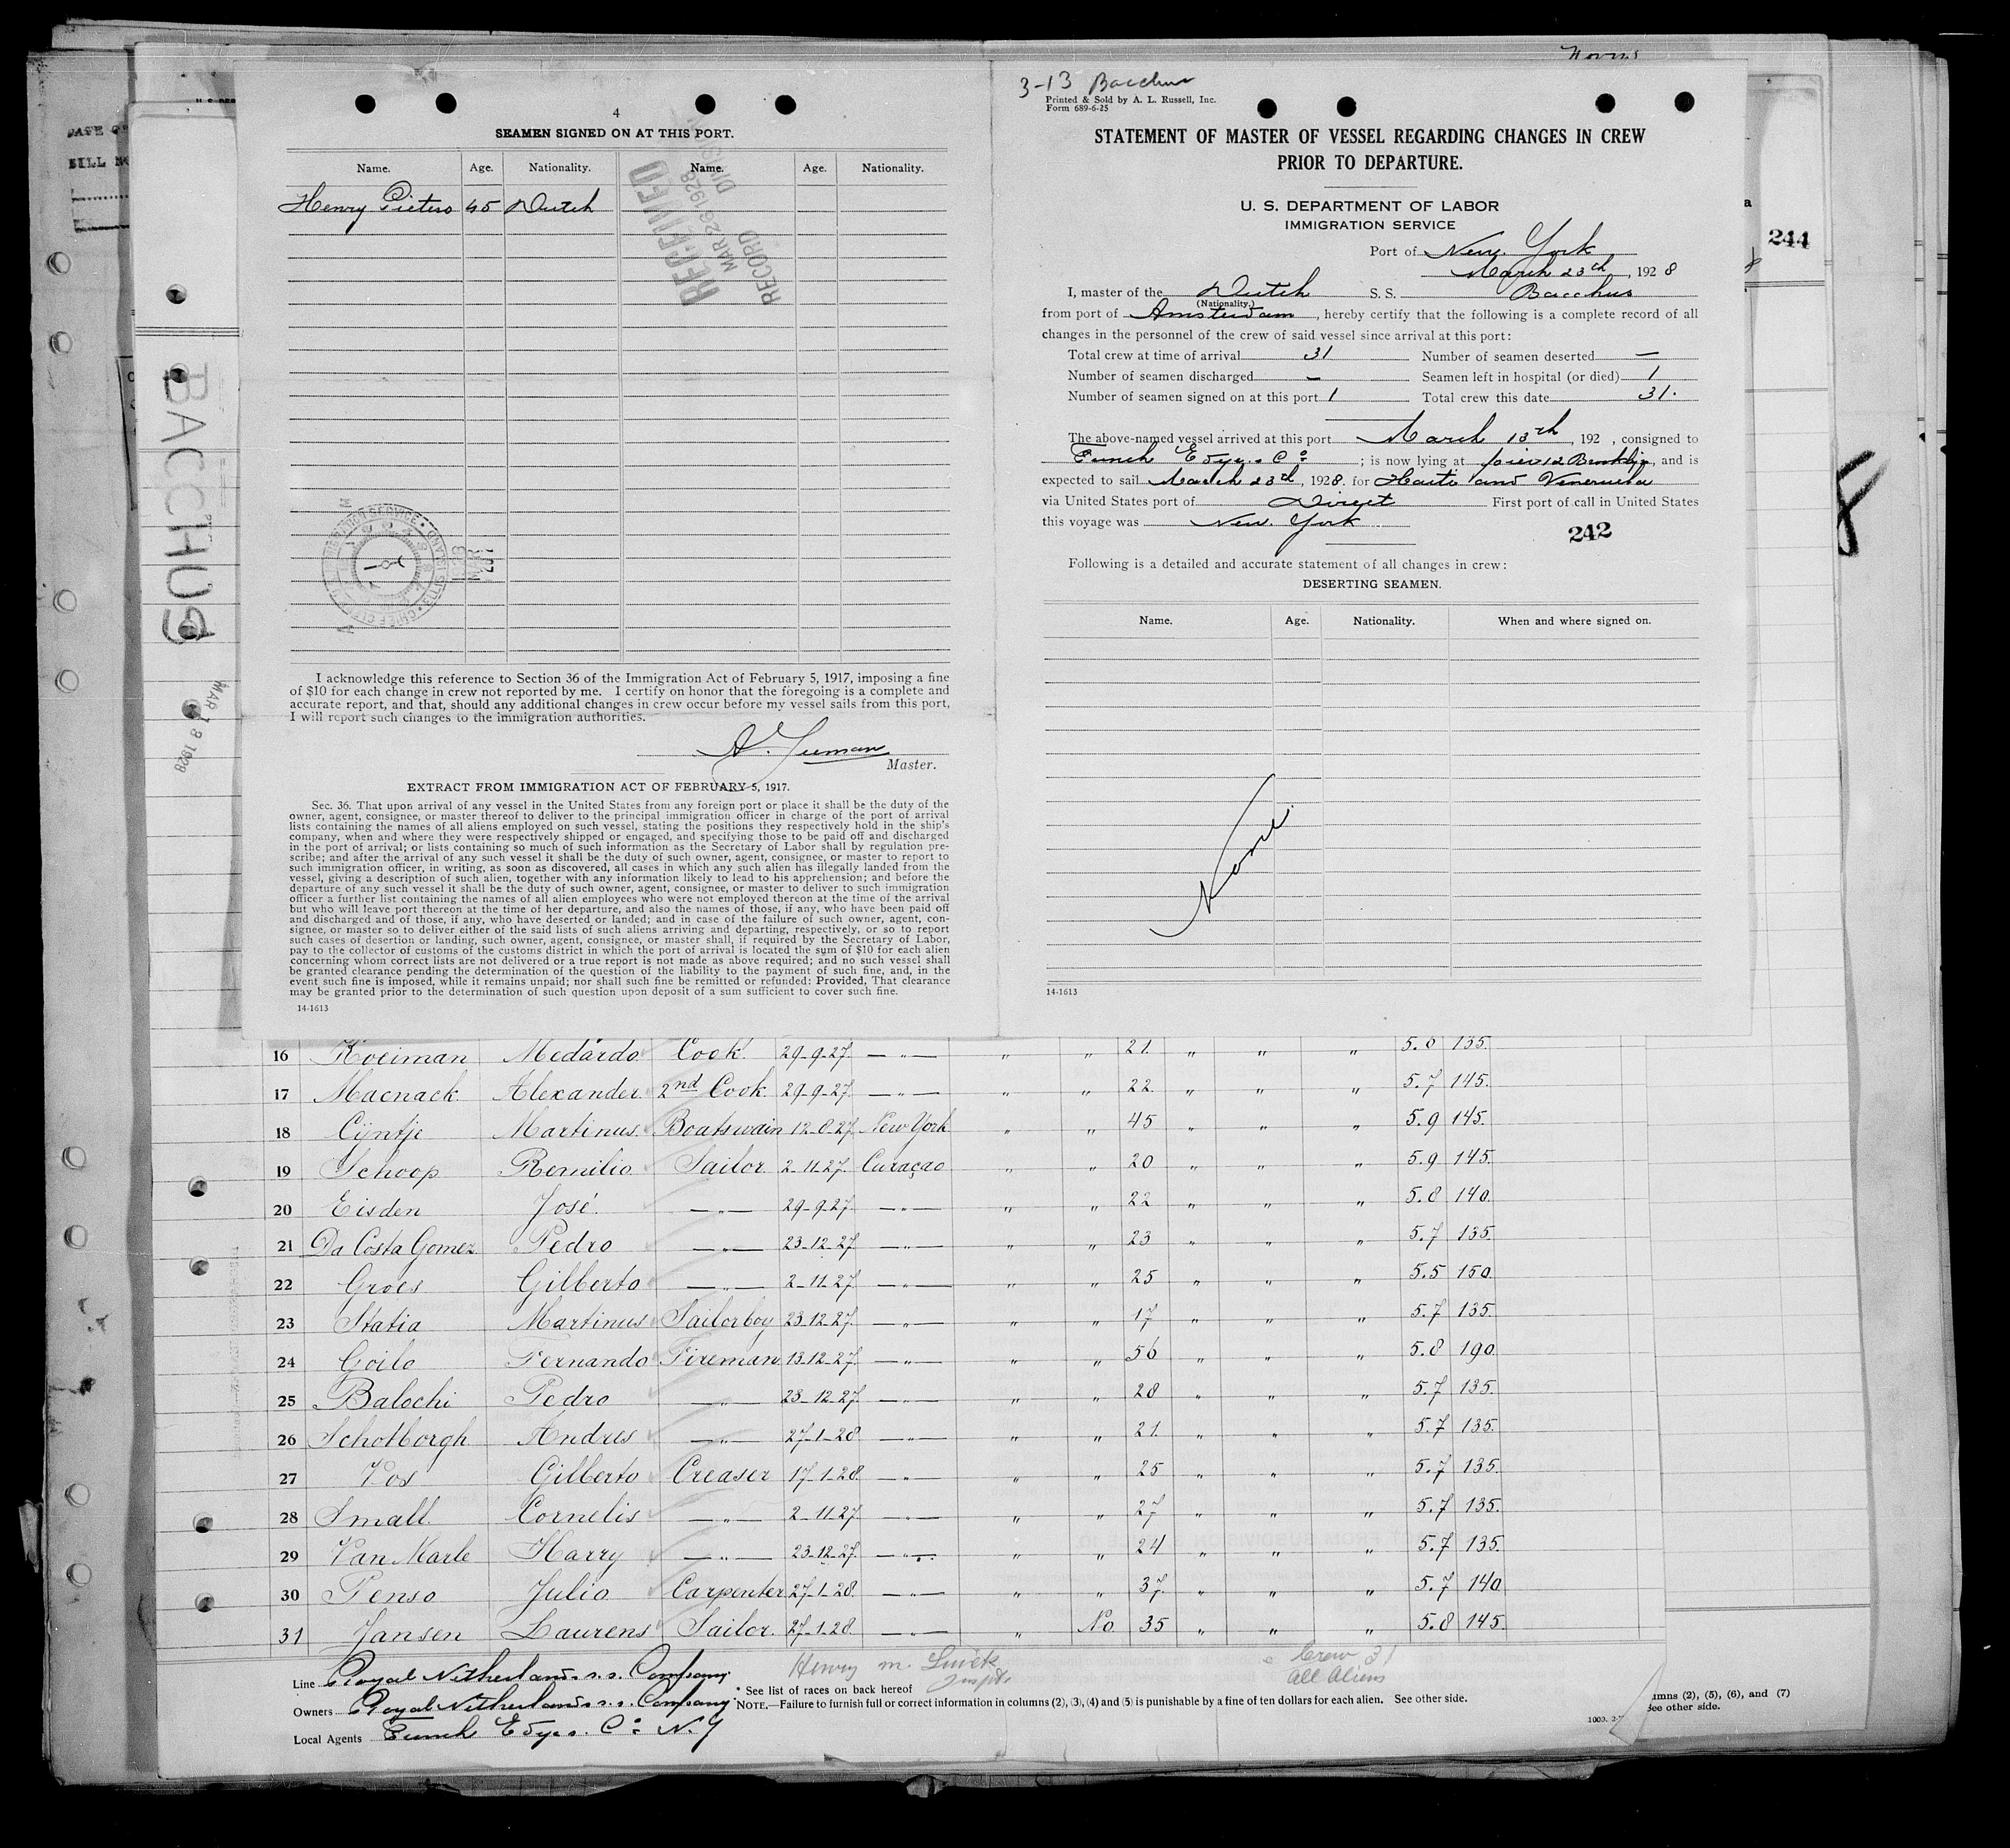 244
BACCHUS
MAR 13 1928
4
SEAMEN SIGNED ON AT THIS PORT.
Name. Age. Nationality. Name. Age. Nationality.
Henry Pieters 45 Dutch
RECEIVED
MAR 26 1928
RECORD DIVISION
I acknowledge this reference to Section 36 of the Immigration Act of February 5, 1917, imposing a fine
of $10 for each change in crew not reported by me. I certify on honor that the foregoing is a complete and
accurate report, and that, should any additional changes in crew occur before my vessel sails from this port,
I will report such changes to the immigration authorities.
Master.
EXTRACT FROM IMMIGRATION ACT OF FEBRUARY 5, 1917.
Sec. 36. That upon arrival of any vessel in the United States from any foreign port or place it shall be the duty of the
owner, agent, consignee, or master thereof to deliver to the principal immigration officer in charge of the port of arrival
lists containing the names of all aliens employed on such vessel, stating the positions they respectively hold in the ship's
company, when and where they were respectively shipped or engaged, and specifying those to be paid off and discharged
in the port of arrival; or lists containing so much of such information as the Secretary of Labor shall by regulation pre-
scribe; and after the arrival of any such vessel it shall be the duty of such owner, agent, consignee, or master to report to
such immigration officer, in writing, as soon as discovered, all cases in which any such alien has illegally landed from the
vessel, giving a description of such alien, together with any information likely to lead to his apprehension; and before the
departure of any such vessel it shall be the duty of such owner, agent, consignee, or master to deliver to such immigration
officer a further list containing the names of all alien employees who were not employed thereon at the time of the arrival
but who will leave port thereon at the time of her departure, and also the names of those, if any, who have been paid off
and discharged and of those, if any, who have deserted or landed; and in case of the failure of such owner, agent, con-
signee, or master so to deliver either of the said lists of such aliens arriving and departing, respectively, or so to report
such cases of desertion or landing, such owner, agent, consignee, or master shall, if required by the Secretary of Labor,
pay to the collector of customs of the customs district in which the port of arrival is located the sum of $10 for each alien
concerning whom correct lists are not delivered or a true report is not made as above required; and no such vessel shall
be granted clearance pending the determination of the question of the liability to the payment of such fine, and, in the
event such fine is imposed, while it remains unpaid; nor shall such fine be remitted or refunded: Provided, That clearance
may be granted prior to the determination of such question upon deposit of a sum sufficient to cover such fine.
14-1613
3-13 Bacchus
Printed & Sold by A. L. Russell, Inc.
Form 689-6-25
STATEMENT OF MASTER OF VESSEL REGARDING CHANGES IN CREW
PRIOR TO DEPARTURE.
U. S. DEPARTMENT OF LABOR
IMMIGRATION SERVICE
Port of New York
March 23th, 1928
I, master of the Dutch S. S. Bacchus
(Nationality.)
from port of Amsterdam, hereby certify that the following is a complete record of all
changes in the personnel of the crew of said vessel since arrival at this port:
Total crew at time of arrival 31 Number of seamen deserted —
Number of seamen discharged — Seamen left in hospital (or died) 1
Number of seamen signed on at this port 1 Total crew this date 31.
The above-named vessel arrived at this port March 13th, 192 , consigned to
Funch Edye & Co; is now lying at pier 12 Brooklyn, and is
expected to sail March 23th, 1928. for Haiti and Venezuela
via United States port of Direct First port of call in United States
this voyage was New York
242
Following is a detailed and accurate statement of all changes in crew:
DESERTING SEAMEN.
Name. Age. Nationality. When and where signed on.
None
14-1613
16 Koeiman Medardo Cook. 29-9-27 —"— " " 21 " " " 5.8 135.
17 Macnack Alexander 2nd Cook. 29-9-27. —"— " " 22 " " " 5.7 145.
18 Cÿntje Martinus Boatswain 12-8-27 New York " " 45 " " " 5.9 145.
19 Schoop Remilio Sailor 2-11-27. Curaçao " " 20 " " " 5.9 145.
20 Eisden José. —"— 29-9-27 —"— " " 22 " " " 5.8 140.
21 Da Costa Gomez Pedro —"— 23-12-27 —"— " " 23 " " " 5.7 135.
22 Groes Gilberto —"— 2-11-27 —"— " " 25 " " " 5.5 150.
23 Statia Martinus Sailorboy 23-12-27. —"— " " 17 " " " 5.7 135.
24 Goilo Fernando Fireman 13-12-27. —"— " " 56 " " " 5.8 190.
25 Balochi Pedro —"— 23-12-27. —"— " " 28 " " " 5.7 135.
26 Schotborgh Andres —"— 27-1-28 —"— " " 21. " " " 5.7 135.
27 Vos Gilberto Creaser 17-1-28 —"— " " 25 " " " 5.7 135.
28 Small Cornelis —"— 2-11-27. —"— " " 27 " " " 5.7 135.
29 Van Marle Harry —"— 23-12-27. —"— " " 24 " " " 5.7 135.
30 Penso Julio Carpenter 27-1-28. —"— " " 37. " " " 5.7 140
31 Jansen Laurens Sailor. 27-1-28. —"— " No 35 " " " 5.8 145.
Line Royal Netherlands s.s. Company.
Henry m.
Crew 31
All Aliens
* See list of races on back hereof
Owners Royal Netherlands s.s. Company.
NOTE.—Failure to furnish full or correct information in columns (2), (3), (4) and (5) is punishable by a fine of ten dollars for each alien. See other side.
Local Agents Funch Edye & Co N.Y
umns (2), (5), (6), and (7)
See other side.